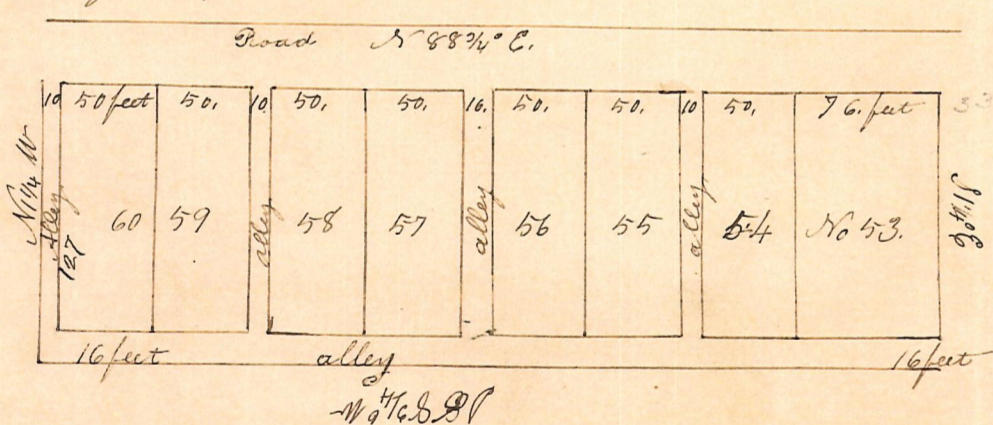 Road N 88 3/4° E.
10 50 feet 50. 10 50. 50. 16. 50. 50. 10 50. 76. feet 33
N 1 1/4 W
Alley
127
60 59 alley 58 57 alley 56 55 alley 54 No 53.
S 1 1/4° E
16 feet alley 16 feet